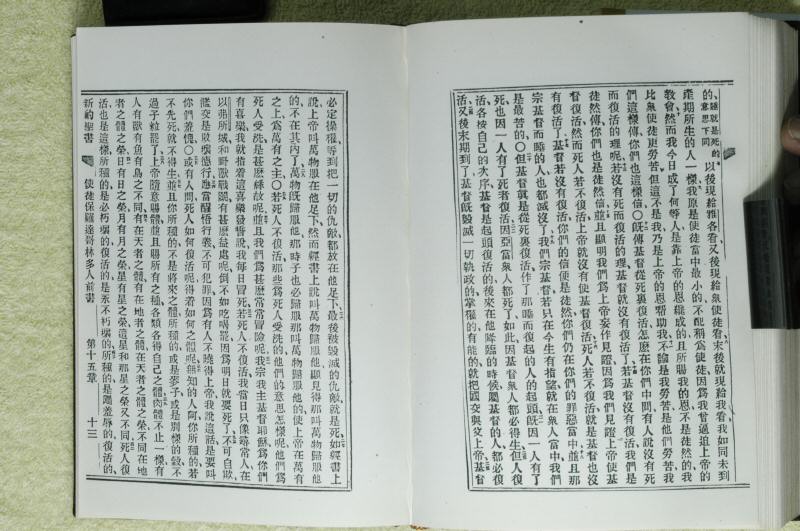 睡就是死的
的意思下同
以後現給雅各看又後現給衆使徒看末後就現給我看我如同未到
產期所生的人一樣我原是使徒當中最小的不配稱爲使徒因爲我曾逼迫上帝的
教會然而我今日成了何等人是靠上帝的恩纔成的且所賜我的恩不是徒然的我
比衆使徒更勞苦但這不是我乃是上帝的恩幫助我不論是我勞苦是他們勞苦我
們這樣傳你們也這樣信〇既傳基督從死裏復活怎麽在你們中間有人說沒有死
而復活的理呢若沒有死而復活的理基督就沒有復活了若基督沒有復活我們是
徒然傳你們也是徒然信並且顯明我們爲上帝妄作見證因爲我們見證上帝使基
督復活然而死人若不復活上帝就沒有使基督復活死人若不復活就是基督也沒
有復活了基督若沒有復活你們的信便是徒然你們仍在你們的罪惡當中並且那
宗基督而睡的人也都滅沒了我們宗基督若只在今生有指望就在衆人當中我們
是最苦的〇但基督眞是從死裏復活作了那睡而復起的人的起頭旣因一人有了
死也因一人有了死者復活因亞當衆人都死了如此因基督衆人都必得生但人復
活各按自己的次序基督是起頭復活的後來在他降臨的時候屬基督的人都必復
活又後末期到了基督旣毀滅一切執政的掌權的有能的就把國交與父上帝基督
必定操權等到把一切的仇敵都放在他足下最後被毀滅的仇敵就是死如經書上
說上帝叫萬物服在他足下然而經書上說叫萬物歸服他顯見得那叫萬物歸服他
的不在其內了萬物旣歸服他那時子也必歸服那叫萬物歸服他的使上帝在萬有
之上爲萬有之主〇若死人不復活那些爲死人受洗的他們的意思怎樣呢他們爲
死人受洗是甚麽緣故呢並且我們爲甚麽常常冒險呢我宗我主基督耶穌爲你們
有喜樂我就指着這喜樂發誓說我每日冒死若死人不復活我當日只像尋常人在
以弗所城和野獸戰鬬有甚麽益處呢倒不如吃喝罷因爲明日就要死了不可自欺
濫交是敗壞德行應當醒悟行義不可犯罪因爲有人不曉得上帝我說這話是要叫
你們羞愧〇或有人問死人如何復活呢得着如何之體呢無知的人阿你所種的若
不先死就不得生並且你所種的不是將來之體所種的或是麥子或是別樣的穀不
過子粒罷了上帝隨意賜體並且賜所有之種各類各得自己之體肉體不止一樣有
人有獸有魚有鳥之不同有在天者之體有在地者之體在天者之體之榮不同在地
者之體之榮日有日之榮月有月之榮星有星之榮這星和那星之榮又不同死人復
活也是這樣所種的是必朽壞的復活的是永不朽壞的所種的是羞辱的復活的
新約聖書　使徒保羅達哥林多人前書　第十五章　十三